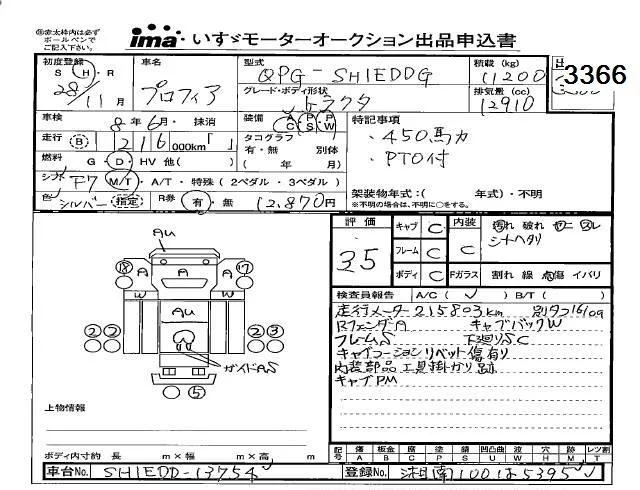 ㊟赤太枠内は必ず
ボールペンで
ご記入下さい。
ima いすゞモーターオークション出品申込書
初度登録 S・H・R 28/11月
車名 プロフィア
型式 QPG-SH1EDDG
積載(kg) 11200
3366
グレード・ボディ形状 トラクタ
排気量(cc) 12910
車検 8年6月・抹消
装備 AC PS PW
特記事項
・450馬力
・PTO付
走行 B 216000km「 」
タコグラフ 有・無 別体 ( 年 月)
燃料 G・D・HV 他( )
シフト F7 M/T・A/T・特殊(2ペダル・3ペダル)
架装物年式:( 年式)・不明
※不明の場合は、不明に○をする。
色 シルバー 指定 R券 有・無 12,870円
評価 3.5
キャブ C 内装 汚れ 破れ
フレーム C C シナヘタリ
ボディ C Fガラス 割れ 線 点傷 イバリ
検査員報告 A/C( ✓ ) B/T( )
走行メーター215803km
RフェンダA キャブバックW
フレームS 下廻りSC
キャブコーション リベット傷有り
内装部品 工具掛かり跡
キャブPM
Au
⑱ A A ⑰
W W
Au
② ② ② ③
ガイドAS
⑤
上物情報
ボディ内寸約 長 m×幅 m×高 m
記号 傷A 凹B 腐C 塗P 錆S 凹凸曲U 波W 穴H 跡M レツ割T
車台No. SH1EDD-13754
登録No. 湘南100は5395